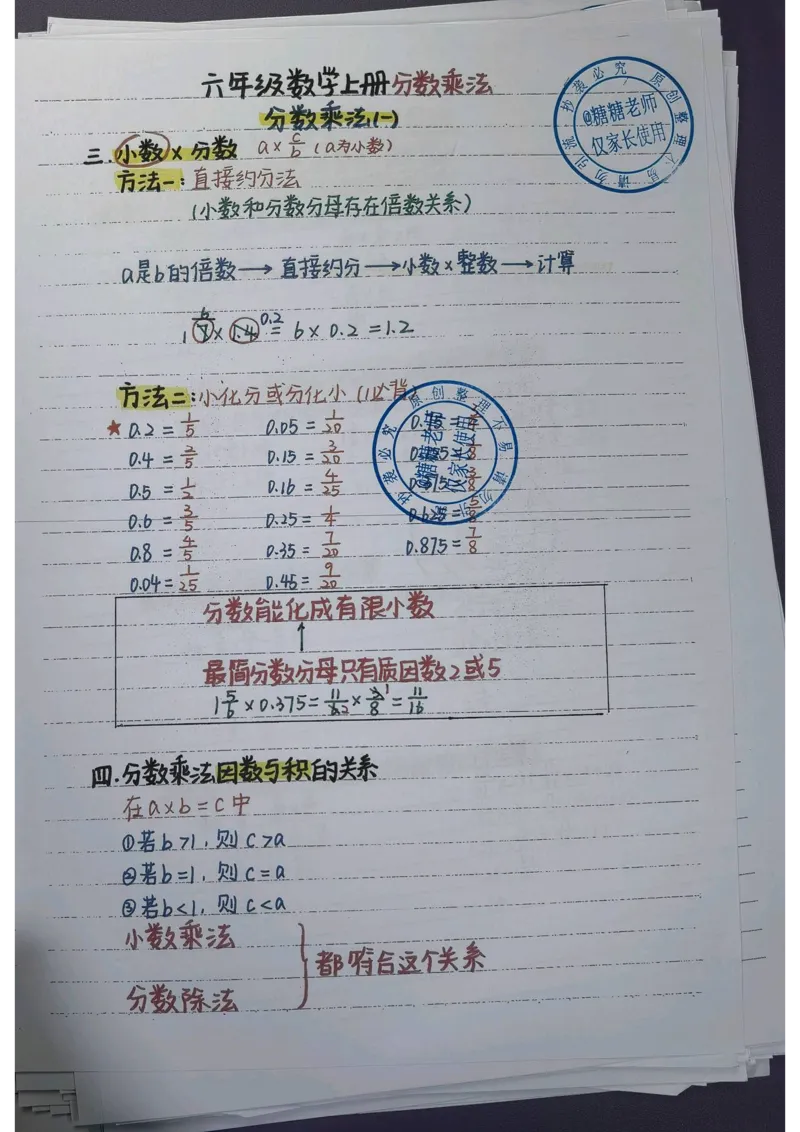 六年级数学上册分数乘法
分数乘法(一)
三.小数×分数 a×c/b (a为小数)
方法一:直接约分法
(小数和分数分母存在倍数关系)
a是b的倍数→直接约分→小数×整数→计算
6/7×1.4 0.2 = 6×0.2=1.2
方法二:小化分或分化小(必背)
★0.2=1/5 0.05=1/20
0.4=2/5 0.15=3/20
0.5=1/2 0.16=4/25
0.6=3/5 0.25=1/4
0.8=4/5 0.35=7/20 0.875=7/8
0.04=1/25 0.45=9/20
分数能化成有限小数
↑
最简分数分母只有质因数2或5
1 5/6×0.375=11/6×3/8=11/16
四.分数乘法因数与积的关系
在a×b=c中
①若b>1,则c>a
②若b=1,则c=a
③若b<1,则c<a
小数乘法
都符合这个关系
分数除法
抄袭必究 原创整理不易 请勿引流
@糖糖老师
仅家长使用
抄袭必究 原创整理不易 请勿
@糖糖老师
仅家长使用